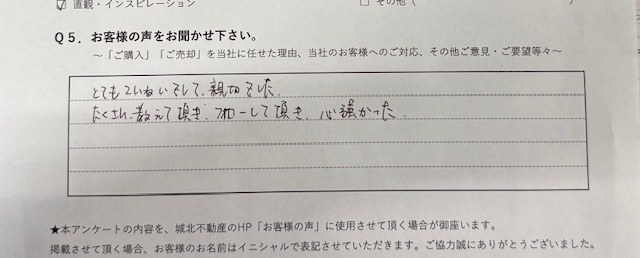 ☑ 直観・インスピレーション　□ その他（　　　）
Q5．お客様の声をお聞かせ下さい。
～「ご購入」「ご売却」を当社に任せた理由、当社のお客様へのご対応、その他ご意見・ご要望等々～
とてもていねいでして、親切でした。
たくさん教えて頂き、フォローして頂き、心強かった。
★本アンケートの内容を、城北不動産のHP「お客様の声」に使用させて頂く場合が御座います。
掲載させて頂く場合、お客様のお名前はイニシャルで表記させていただきます。ご協力誠にありがとうございました。